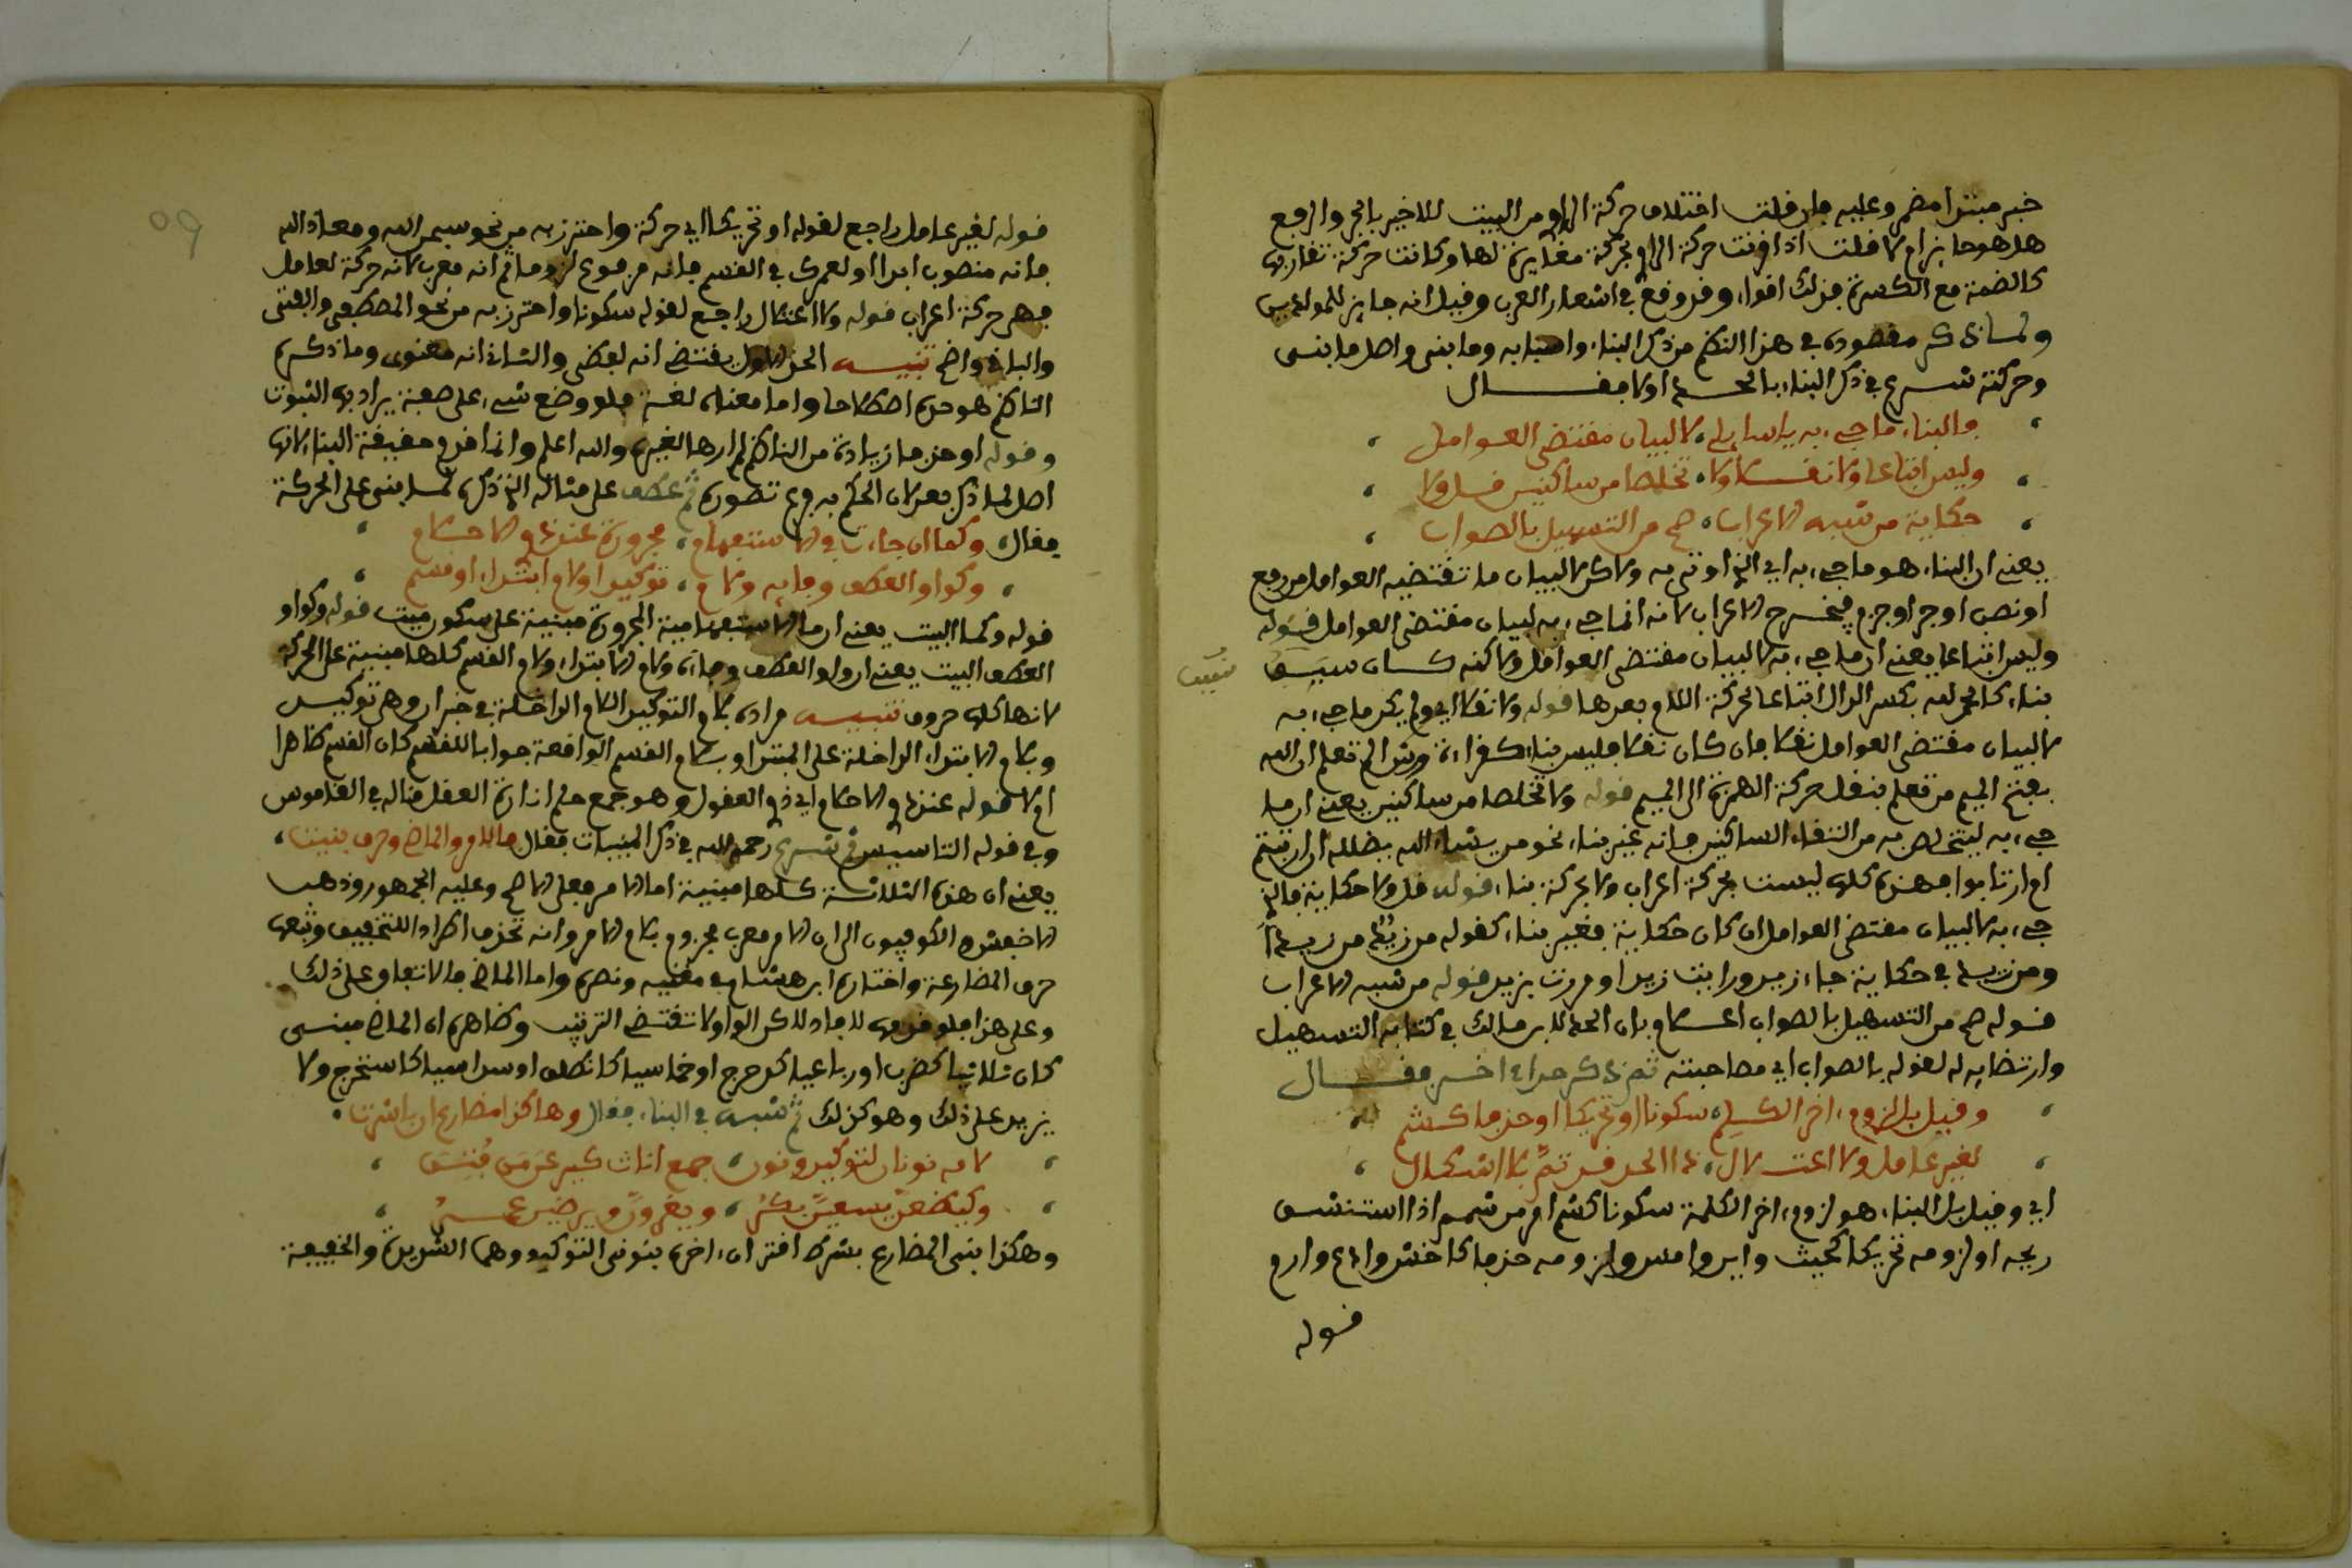 خبر مبتدا مضمر وعليه فان قلت اختلاف حركة الراو من البيت للاخير بالجر والرفع
هل هو جايز ام لا قلت اذا قرنت حركة الراو بحركة مغايرة لها وكانت حركة تقاربها
كالضمة مع الكسرة فذلك اقواء وقد وقع في اشعار العرب وقيل انه جايز للمولدين
ولما ذكر مقصوده في هذا النظم من ذكر البناء واسبابه وما بني واصل ما بني
وحركته شرع في ذكر البناء بالحد اولا فقال
والبناء ما جيء به يا سايلي لا لبيان مقتضى العوامل
وليس اتباعا ولا نقلا ولا تخلصا من ساكنين قل ولا
حكاية من شبه الاعراب صح من التسهيل بالصواب
يعني ان البناء هو ما جيء به اي الذي اوتي به ولاكن لا لبيان ما تقتضيه العوامل من رفع
او نصب او جر او جزم فيخرج الاعراب لانه انما جيء به لبيان مقتضى العوامل قوله
وليس اتباعا يعني ان ما جيء به لا لبيان مقتضى العوامل ولاكنه كان
بناء كالحمد لله بكسر الدال اتباعا لحركة اللام بعدها قوله ولا نقلا اي ولم يكن ما جيء به
لا لبيان مقتضى العوامل نقلا فان كان نقلا فليس بناء كقراءة ورش الم تعلم ان الله
بفتح الميم من تعلم بنقل حركة الهمزة الى الميم قوله ولا تخلصا من ساكنين يعني ان ما
جيء به ليتخلص به من التقاء الساكنين فانه غير بناء نحو من يشاء الله يضلله ان ارتبتم
ام ارتابوا فهذه كلها ليست بحركة اعراب ولا بحركة بناء قوله قل ولا حكاية فالذي
جيء به لا لبيان مقتضى العوامل ان كان حكاية فغير بناء كقوله من زيد من زيدا
ومن زيد في حكاية جاء زيد ورايت زيدا ومررت بزيد قوله من شبه الاعراب
قوله صح من التسهيل بالصواب اعلام بان الحد لابن مالك في كتابه التسهيل
وارتضايه له لقوله بالصواب اي مصاحبته ثم ذكر حدا اخر فقال
وقيل بل لزوم اخر الكلم سكونا او تحريكا او حذفا كشم
لغير عامل ولا اعتلال ذا الحد قد تم بلا اشكال
اي وقيل بل البناء هو لزوم اخر الكلمة سكونا كشم امر من شمم اذا استنشق
ريحه او لزومه تحريكا كحيث واين وامس ولزومه حذفا كاخش وادع وارم
قوله
قوله لغير عامل راجع لقوله او تحريكا اي حركة واحترز به من نحو سبحن الله ومعاذ الله
فانه منصوب ابدا او لعمرك في القسم فانه مرفوع لزوما ثم انه معرب لانه حركة لعامل
فهي حركة اعراب قوله ولا اعتلال راجع لقوله سكونا واحترز به من نحو المصطفى والفتى
والباقي واضح تنبيه الحد الاول يقتضي انه لفظي والثاني انه معنوي وما ذكره
الناظم هو حده اصطلاحا واما معناه لغة فهو وضع شيء على صفة يراد بها الثبوت
وقوله او حذفا زيادة من الناظم لم ارها لغيره والله اعلم وانما قدم حقيقة البناء لانها
اصل لما ذكر بعد لان الحكم به فرع تصوره ثم عطف على مثاله الذي ذكره لما بني على الحركة
فقال وكما ان جاءت في الاستفهام مجرورة عند ذوي الاحكام
وكواو العطف وفايه ولام توكيد او لام ابتداء او قسم
قوله وكما البيت يعني ان ما الاستفهامية المجرورة مبنية على سكون ميت قوله وكواو
العطف البيت يعني ان واو العطف وفاءه ولام الابتداء ولام القسم كلها مبنية على الحركة
لانها كلها حروف تنبيه مراده بلام التوكيد اللام الداخلة في خبر ان وهي توكيد
وبلام الابتداء الداخلة على المبتدا وبلام القسم الواقعة جوابا للقسم كان القسم ظاهرا
ام لا قوله عند ذوي الاحكام اي ذوي العقول وهو جمع حلم اناة العقل قاله في القاموس
وفي قوله التاسيس ثم شرع رحمه الله في ذكر المبنيات فقال فالامر والماضي وحرف بنيت
يعني ان هذه الثلاثة كلها مبنية اما الامر فعلى الاصح وعليه الجمهور وذهب
الاخفش والكوفيون الى ان الامر معرب مجزوم بلام الامر وانه تحذف اطرادا للتخفيف وتبعها
حرف المضارعة واختاره ابن هشام في مغنيه ونصره واما الماضي فالاتفاق على ذلك
وعلى هذا فلو قدمه للافاد لاكن الواو لا تقتضي الترتيب وظاهره ان الماضي مبني
كان ثلاثيا كضرب او رباعيا كدحرج او خماسيا كانطلق او سداسيا كاستخرج ولا
يزيد على ذلك وهو كذلك ثم شبه في البناء فقال وهاكذا مضارع ان باشرت
لامه نونان لتوكيد ونون جمع اناث كيرعن من فتن
وكيضعن يسعين بكر ويغزون ويرضين
وهكذا بني المضارع بشرط اقتران اخره بنوني التوكيد وهما الشديدة والخفيفة